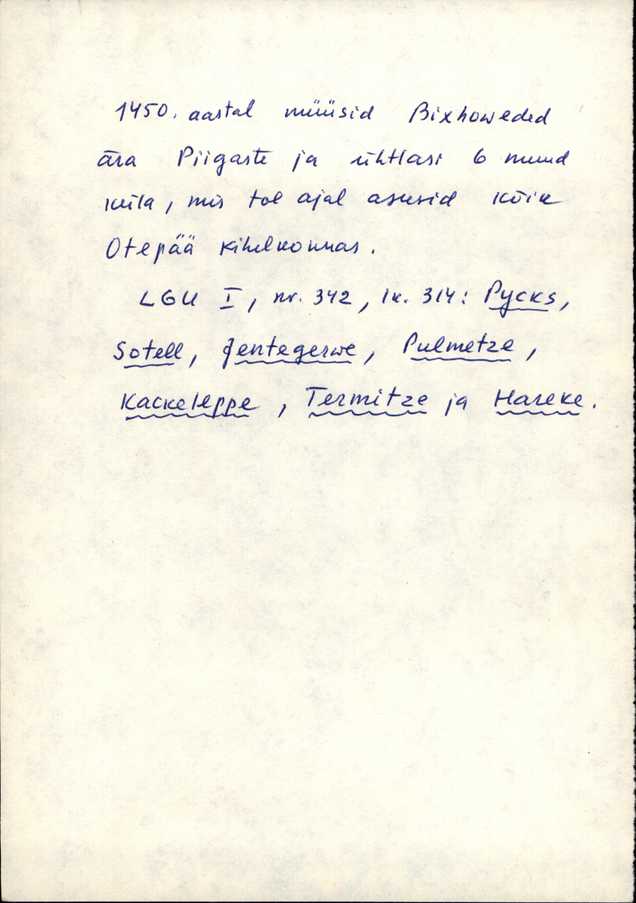 1450. aastal müüsid Bixhoweded
ära Piigaste ja ühtlasi 6 muud
küla, mis tol ajal asusid kõik
Otepää kihelkonnas.
LGU I, nr. 342, lk. 314: Pycks,
Sotell, Jentegerwe, Pulmetze,
Kackeleppe, Termitze ja Hareke.